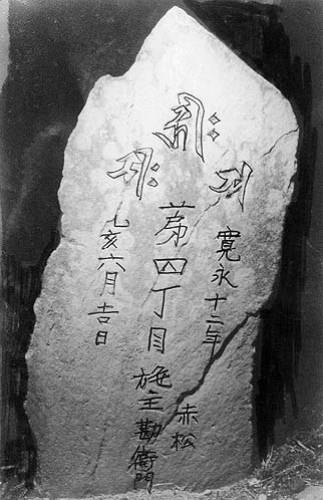 寛永十二年
赤松
第四丁目 施主勘衛門
乙亥六月吉日